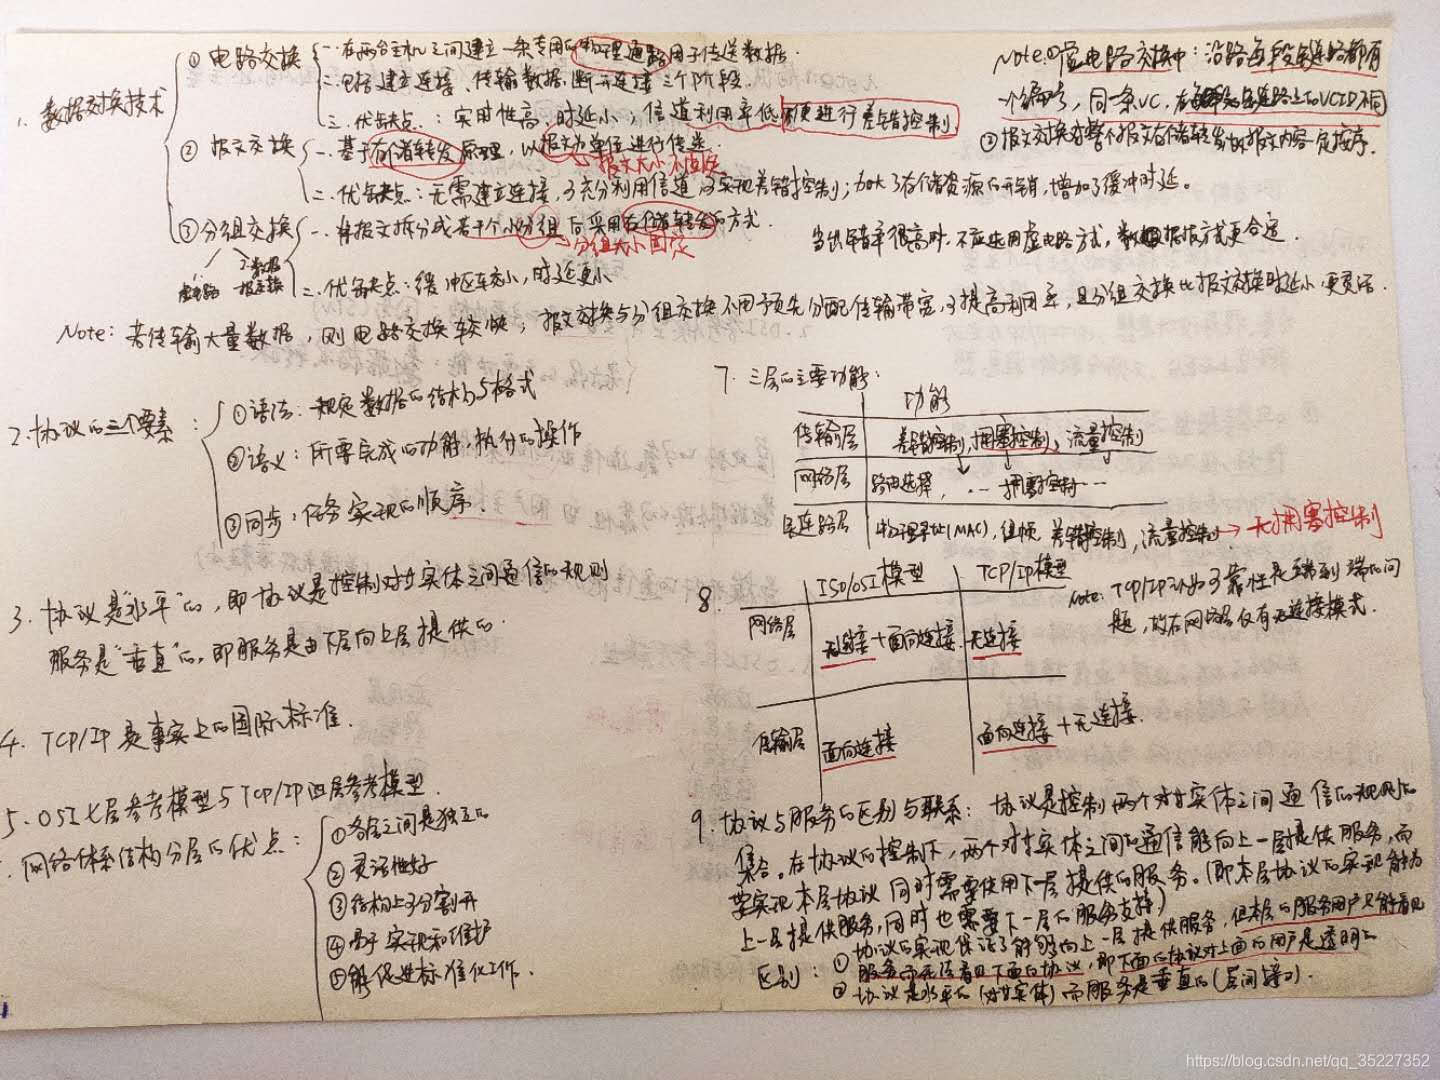 1. 数据交换技术
① 电路交换
一. 在两台主机之间建立一条专用的物理通路用于传送数据.
二. 包括建立连接、传输数据、断开连接三个阶段.
三. 优缺点: 实用性高, 时延小; 信道利用率低, 不便进行差错控制
② 报文交换
一. 基于存储转发原理, 以报文为单位进行传送.
报文大小不固定
二. 优缺点: 无需建立连接, 可充分利用信道, 可实现差错控制; 加大了存储资源的开销, 增加了缓冲时延。
③ 分组交换
一. 将报文拆分成若干个小分组后采用存储转发的方式.
分组大小固定
虚电路
数据报交换
二. 优缺点: 缓冲区较小, 时延更小
Note: ①虚电路交换中: 沿路每段链路都有
一个编号, 同一条VC, 在链路上的VCID不同
②报文交换对整个报文存储转发故报文内容一定按序.
当出错率很高时, 不应选用虚电路方式, 数据报方式更合适.
Note: 若传输大量数据, 则电路交换较快; 报文交换与分组交换不用预先分配传输带宽, 可提高利用率, 且分组交换比报文交换时延小, 更灵活.
2. 协议的三个要素:
①语法: 规定数据的结构与格式
②语义: 所要完成的功能, 执行的操作
③同步: 任务实现的顺序.
3. 协议是"水平"的, 即协议是控制对等实体之间通信的规则
服务是"垂直"的, 即服务是由下层向上层提供的.
4. TCP/IP是事实上的国际标准.
5. OSI七层参考模型与TCP/IP四层参考模型.
网络体系结构分层的优点:
①各层之间是独立的
②灵活性好
③结构上可分割开
④易于实现和维护
⑤能促进标准化工作.
7. 三层的主要功能:
功能
传输层 差错控制, 拥塞控制, 流量控制
网络层 路由选择, ... 拥塞控制...
链路层 物理寻址(MAC), 组帧, 差错控制, 流量控制→无拥塞控制
8.
ISO/OSI模型 TCP/IP模型
网络层 无连接+面向连接 无连接
传输层 面向连接 面向连接+无连接.
Note: TCP/IP认为可靠性是端到端的问
题, 故在网络层仅有无连接模式.
9. 协议与服务的区别与联系: 协议是控制两个对等实体之间通信的规则的
集合。在协议的控制下, 两个对等实体之间的通信能向上一层提供服务, 而
要实现本层协议同时需要使用下层提供的服务。(即本层协议的实现能为
上一层提供服务, 同时也需要下一层的服务支持)
区别: ① 协议的实现保证了能够向上一层提供服务, 但本层的服务用户只能看见
服务而无法看见下面的协议, 即下面的协议对上面的用户是透明的
② 协议是水平的(对等实体)而服务是垂直的(层间接口).
https://blog.csdn.net/qq_35227352